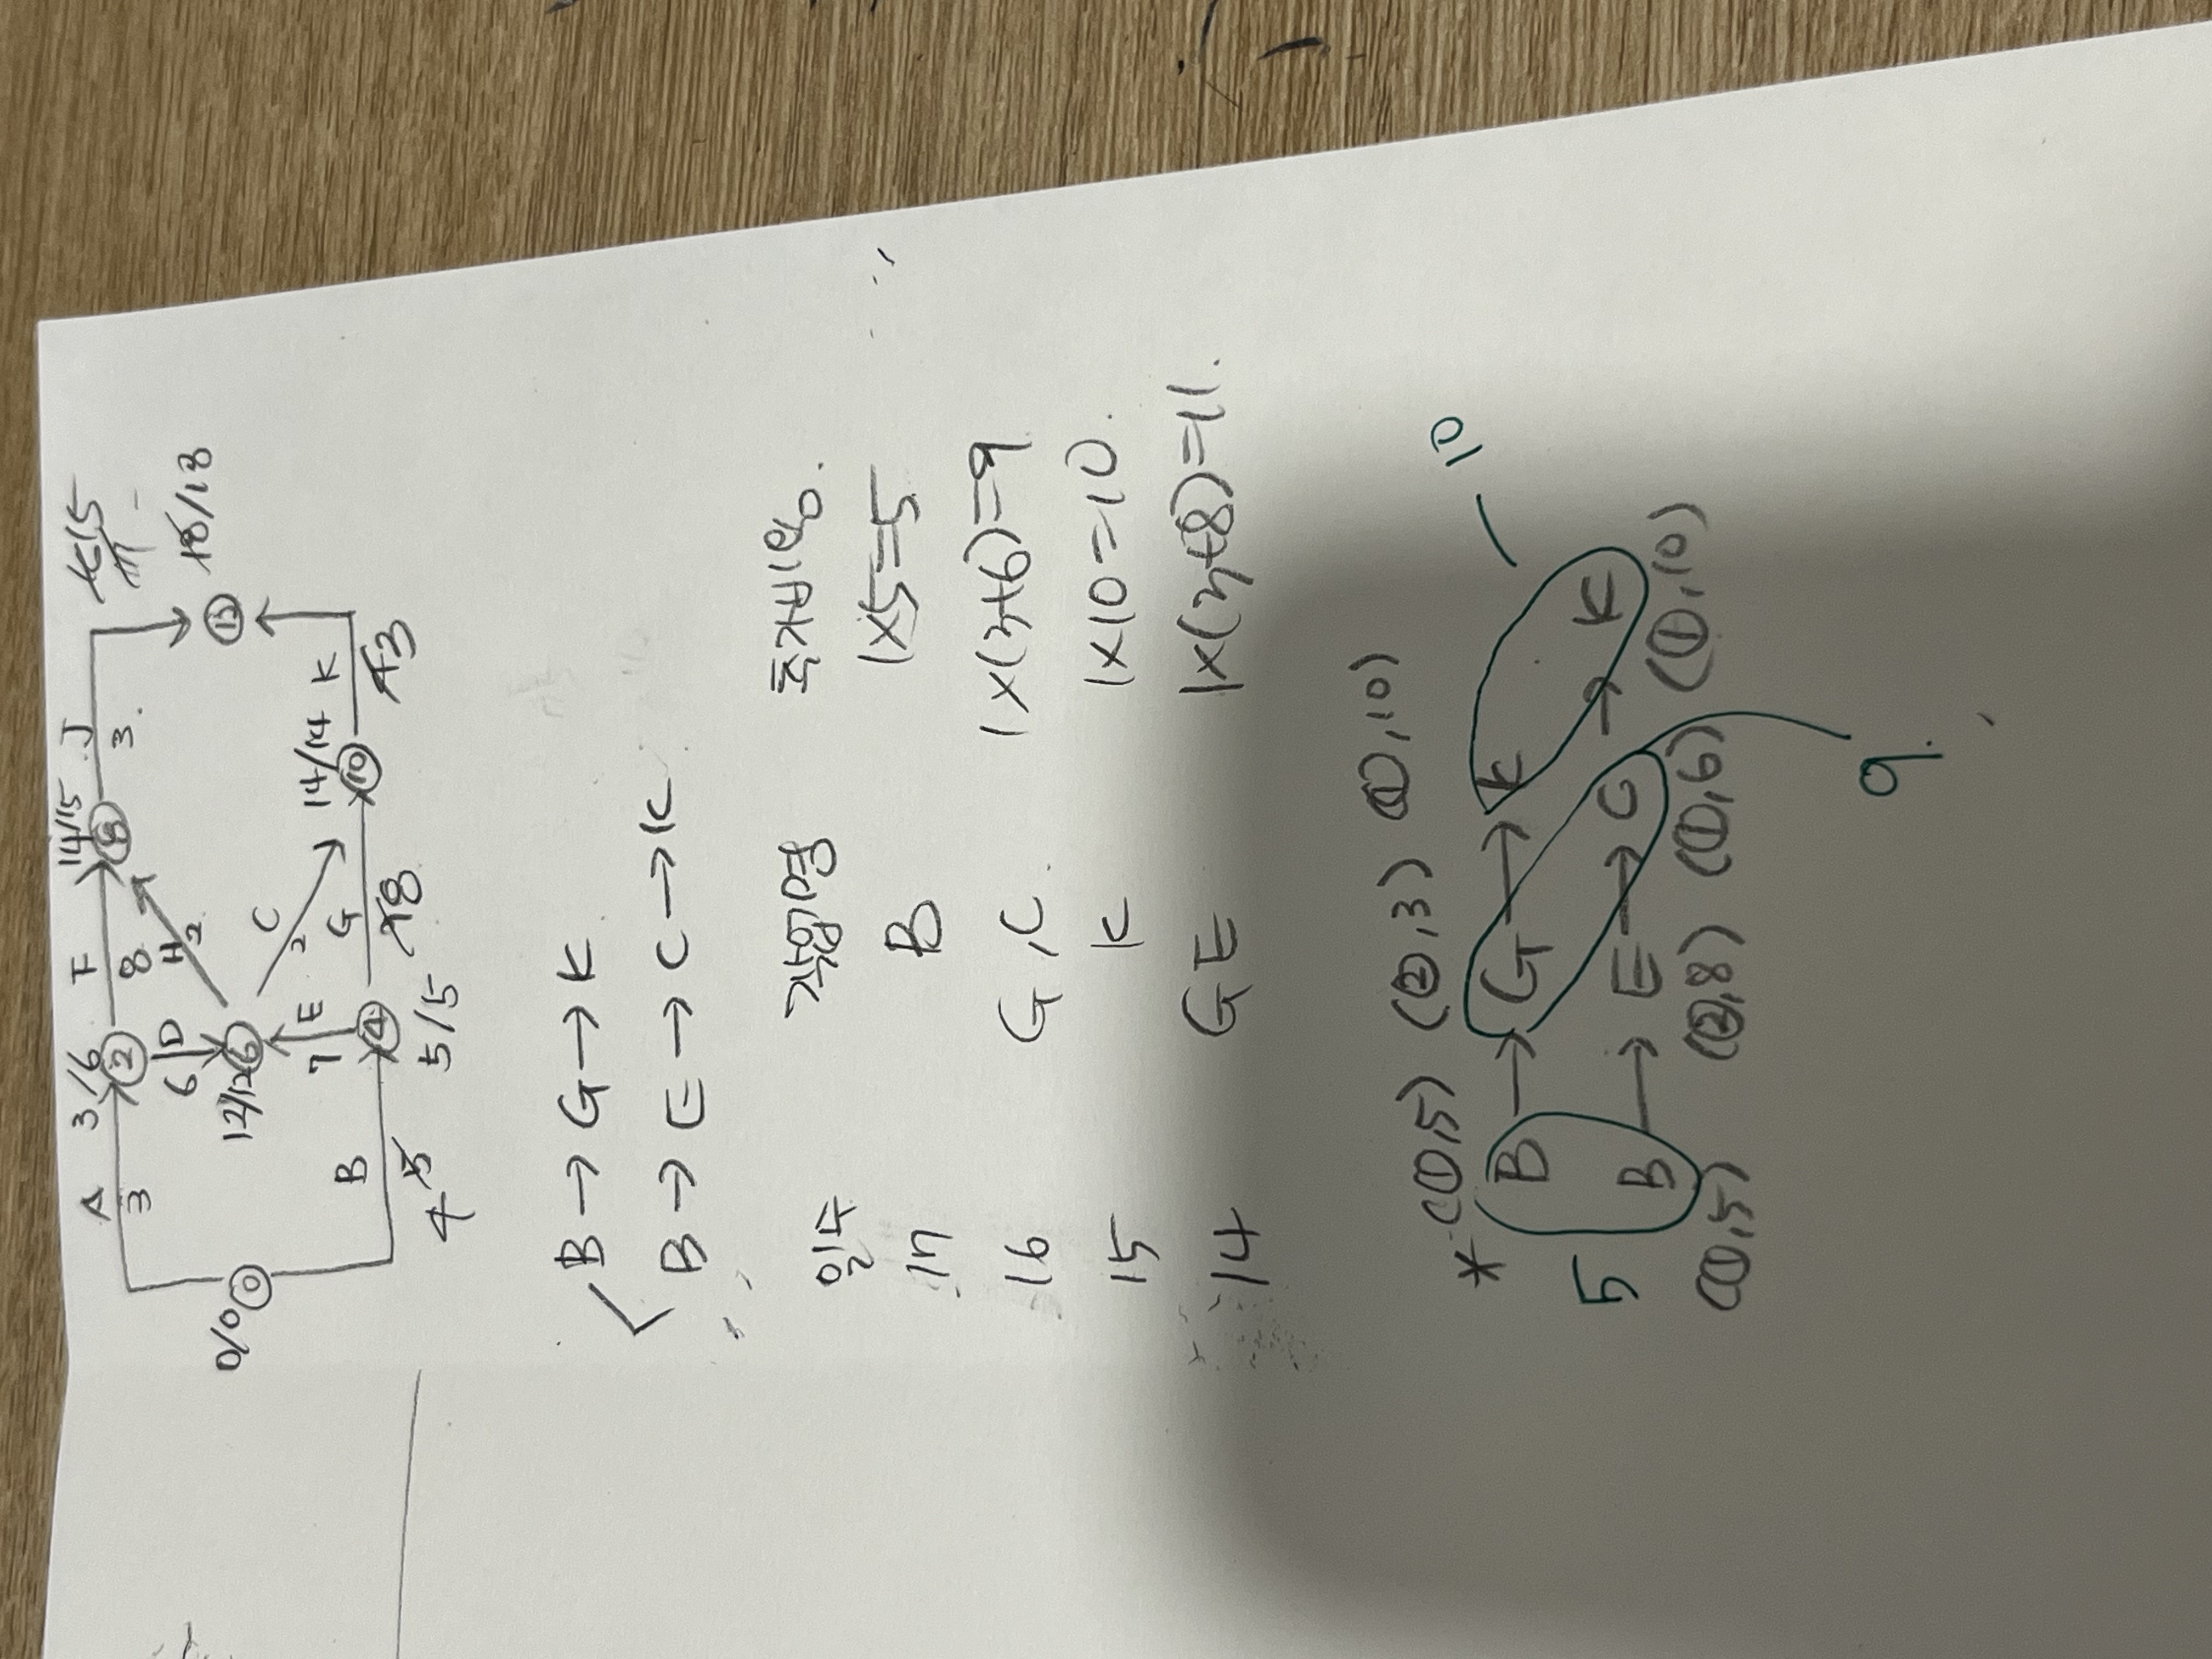 A 3/6 F 14/15 J
3 ② 8 ⑧ 3.
6 D H 2
0/0 ⓪ 12/12 ⑥ C 18/18
7 E 2 14/14
B ④ G ⑩ K
4 5 5/5 8 3
B → G → K
B → E → C → K
일수 작업명 추가비용.
17 B 1×5=5
16 G,C. 1×(3+6)=9
15 K 1×10=10.
14 G E 1×(3+8)=11.
* (①,5) (②,3) (①,10)
B → G → K 10
5
B → E → C → K
(①,5) (②,8) (①,6) (①,10)
9.